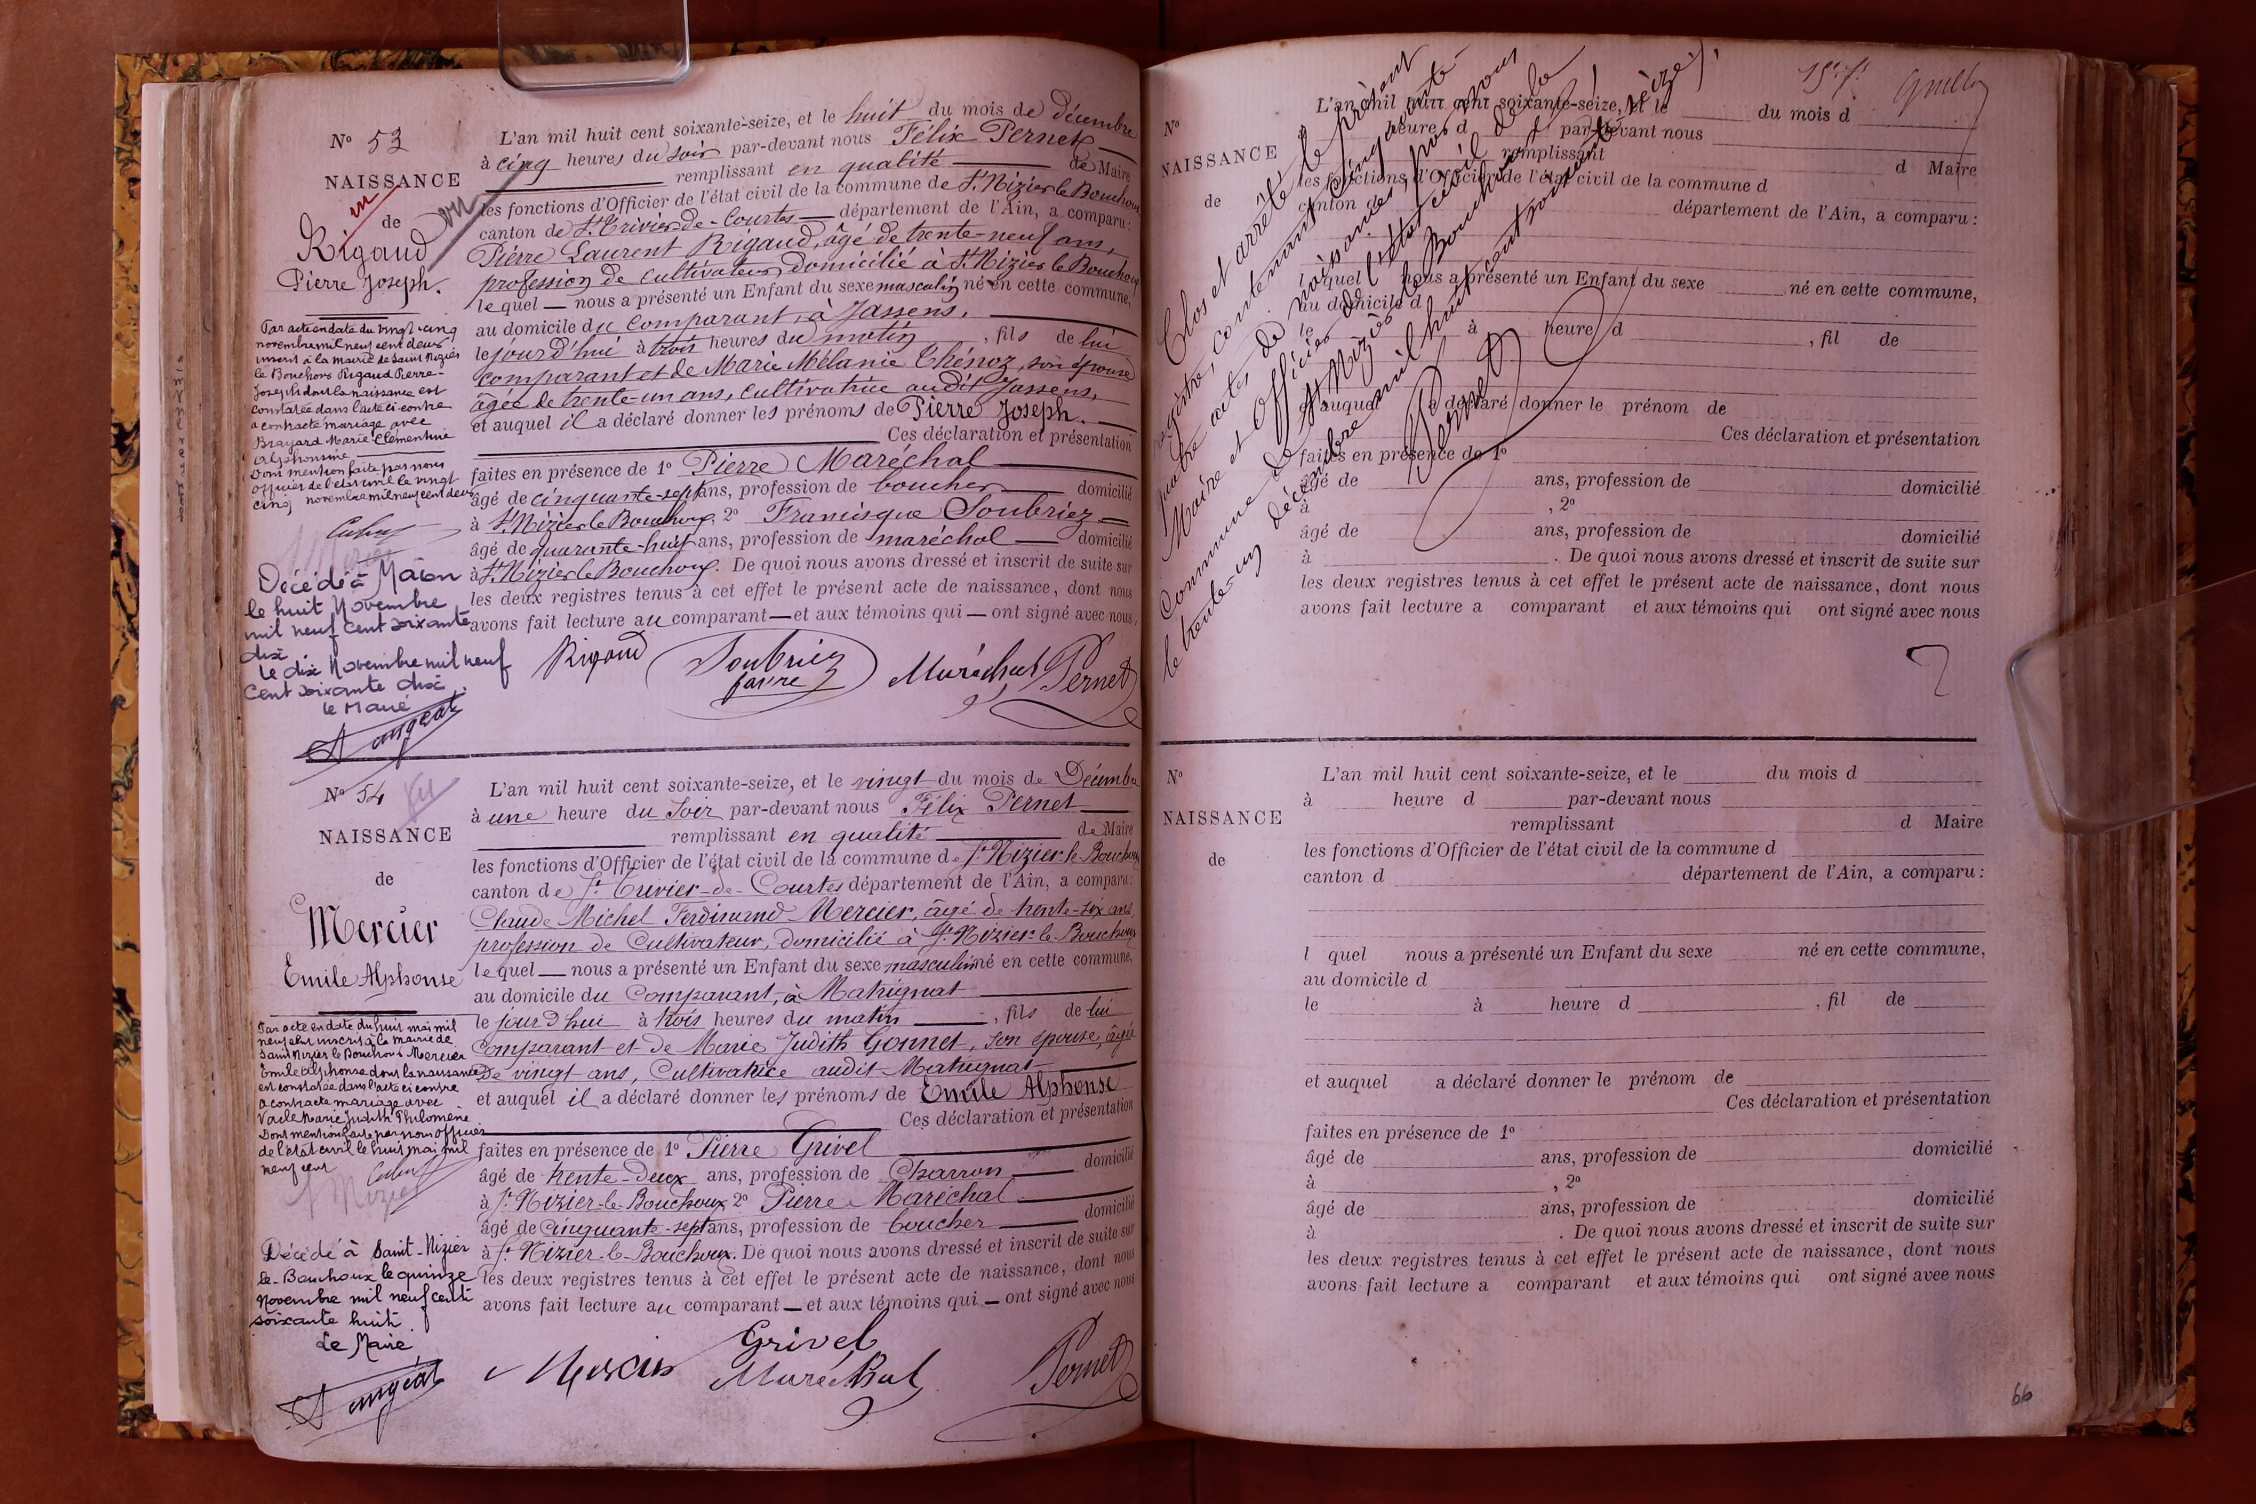 N° 53
NAISSANCE
de
Rigaud
Pierre Joseph.
Par acte en date du vingt-cinq
novembre mil neuf cent deux
inscrit à la mairie de Saint Nizier
le Bouchoux Rigaud Pierre-
Joseph dont la naissance est
constatée dans l'acte ci-contre
a contracté mariage avec
Brayard Marie Clémentine
Alphonsine
Dont mention faite par nous
officier de l'état civil le vingt
cinq novembre mil neuf cent deux
Décédé à Mâcon
le huit Novembre
mil neuf cent soixante
dix
le dix Novembre mil neuf
cent soixante dix.
le Maire
L'an mil huit cent soixante-seize, et le huit du mois de décembre
à cinq heures du soir par-devant nous Félix Pernet
remplissant en qualité de Maire
les fonctions d'Officier de l'état civil de la commune de St Nizier le Bouchoux
canton de St Trivier-de-Courtes département de l'Ain, a comparu:
Pierre Laurent Rigaud, âgé de trente-neuf ans,
profession de cultivateur, domicilié à St Nizier le Bouchoux
lequel nous a présenté un Enfant du sexe masculin né en cette commune,
au domicile du comparant, à Jassens,
le jourd'hui à trois heures du matin, fils de lui
comparant et de Marie Mélanie Chénoz, son épouse
âgée de trente-un ans, cultivatrice audit Jassens,
et auquel il a déclaré donner les prénoms de Pierre Joseph.
Ces déclaration et présentation
faites en présence de 1° Pierre Maréchal
âgé de cinquante-sept ans, profession de boucher domicilié
à St Nizier le Bouchoux, 2° Francisque Soubriez
âgé de quarante-huit ans, profession de maréchal domicilié
à St Nizier le Bouchoux. De quoi nous avons dressé et inscrit de suite sur
les deux registres tenus à cet effet le présent acte de naissance, dont nous
avons fait lecture au comparant et aux témoins qui ont signé avec nous.
Rigaud Soubriez Maréchal Pernet
favre
N° 54
NAISSANCE
de
Mercier
Emile Alphonse
Par acte en date du huit mai mil
neuf cent inscrit à la mairie de
Saint Nizier le Bouchoux Mercier
Emile Alphonse dont la naissance
est constatée dans l'acte ci contre
a contracté mariage avec
Vacle Marie Judith Philomène
Dont mention faite par nous officier
de l'état civil le huit mai mil
neuf cent
Décédé à Saint-Nizier
le-Bouchoux le quinze
Novembre mil neuf cent
soixante huit
Le Maire
L'an mil huit cent soixante-seize, et le vingt du mois de Décembre
à une heure du Soir par-devant nous Félix Pernet
remplissant en qualité de Maire
les fonctions d'Officier de l'état civil de la commune de St Nizier-le-Bouchoux
canton de St Trivier-de-Courtes département de l'Ain, a comparu:
Claude Michel Ferdinand Mercier, âgé de trente-six ans,
profession de Cultivateur, domicilié à St Nizier-le-Bouchoux
lequel nous a présenté un Enfant du sexe masculin né en cette commune,
au domicile du Comparant, à Matrignat
le jour d'hui à trois heures du matin, fils de lui
Comparant et de Marie Judith Gonnet, son épouse, âgée
De vingt ans, Cultivatrice audit Matrignat
et auquel il a déclaré donner les prénoms de Emile Alphonse
Ces déclaration et présentation
faites en présence de 1° Pierre Grivel
âgé de trente-deux ans, profession de Charron domicilié
à St Nizier-le-Bouchoux 2° Pierre Maréchal
âgé de cinquante-sept ans, profession de boucher domicilié
à St Nizier-le-Bouchoux. De quoi nous avons dressé et inscrit de suite sur
les deux registres tenus à cet effet le présent acte de naissance, dont nous
avons fait lecture au comparant et aux témoins qui ont signé avec nous
Mercier Grivel Maréchal Pernet
Clos et arrêté le présent
registre, contenant cinquante-
quatre actes de naissances, par nous
Maire et Officier de l'état civil de la
Commune de St Nizier le Bouchoux,
le trente-un décembre mil huit cent soixante-seize.
Pernet
N°
NAISSANCE
de
L'an mil huit cent soixante-seize, et le du mois d
heure d par-devant nous
remplissant d Maire
les fonctions d'Officier de l'état civil de la commune d
canton d département de l'Ain, a comparu:
l quel nous a présenté un Enfant du sexe né en cette commune,
au domicile d
le à heure d , fil de
et auquel a déclaré donner le prénom de
Ces déclaration et présentation
faites en présence de 1°
âgé de ans, profession de domicilié
à , 2°
âgé de ans, profession de domicilié
à . De quoi nous avons dressé et inscrit de suite sur
les deux registres tenus à cet effet le présent acte de naissance, dont nous
avons fait lecture a comparant et aux témoins qui ont signé avec nous
N°
NAISSANCE
de
L'an mil huit cent soixante-seize, et le du mois d
à heure d par-devant nous
remplissant d Maire
les fonctions d'Officier de l'état civil de la commune d
canton d département de l'Ain, a comparu:
l quel nous a présenté un Enfant du sexe né en cette commune,
au domicile d
le à heure d , fil de
et auquel a déclaré donner le prénom de
Ces déclaration et présentation
faites en présence de 1°
âgé de ans, profession de domicilié
à , 2°
âgé de ans, profession de domicilié
à . De quoi nous avons dressé et inscrit de suite sur
les deux registres tenus à cet effet le présent acte de naissance, dont nous
avons fait lecture a comparant et aux témoins qui ont signé avec nous
66